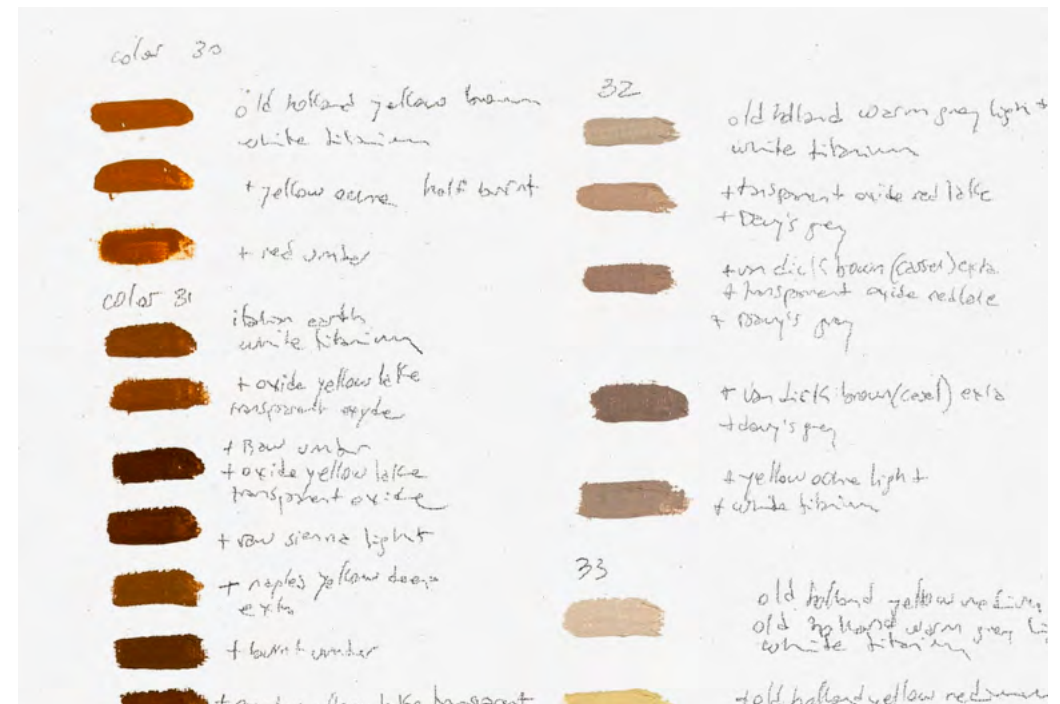 color 30
old holland yellow brown
white titanium
+ yellow ocre half burnt
+ red umber
color 31
italian earth
white titanium
+ oxide yellow lake
transparent oxyde
+ Raw umber
+ oxide yellow lake
transparent oxide
+ raw sienna light
+ naples yellow deep
extra
+ burnt umber
yellow lake transparent
32
old holland warm grey light +
white titanium
+ transparent oxide red lake
+ Davy's grey
+ van dick brown (cassel) extra
+ transparent oxide red lake
+ Davy's grey
+ van dick brown (casel) extra
+ davy's grey
+ yellow ocre light
+ white titanium
33
old holland yellow medium
old holland warm grey li
white titanium
+ old holland yellow medium